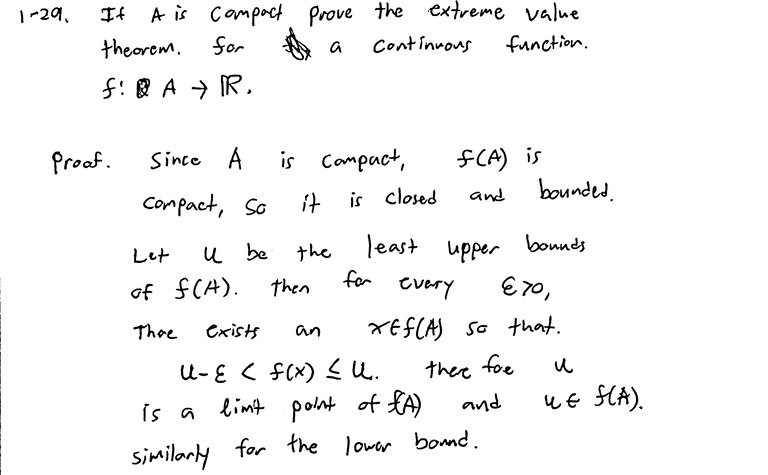 1-29. If A is compact prove the extreme value
theorem. for a continuous function.
f: A → ℝ.
Proof. Since A is compact, f(A) is
compact, so it is closed and bounded.
Let u be the least upper bounds
of f(A). then for every ε>0,
Thre exists an x∈f(A) so that.
u-ε < f(x) ≤ u. there foe u
is a limit point of f(A) and u∈ f(A).
similarly for the lower bound.